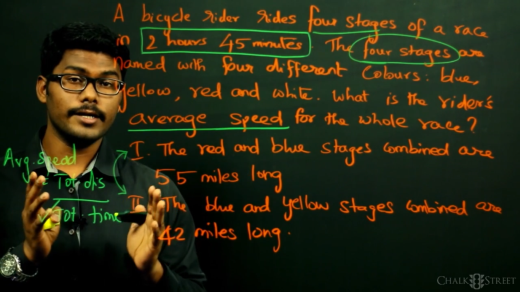 A bicycle rider rides four stages of a race
in 2 hours 45 minutes. The four stages are
named with four different Colours: blue,
yellow, red and white. What is the rider's
average speed for the whole race?
I. The red and blue stages combined are
55 miles long
II. The blue and yellow stages combined are
42 miles long.
Avg. speed
= Tot dis
Tot time
CHALK STREET